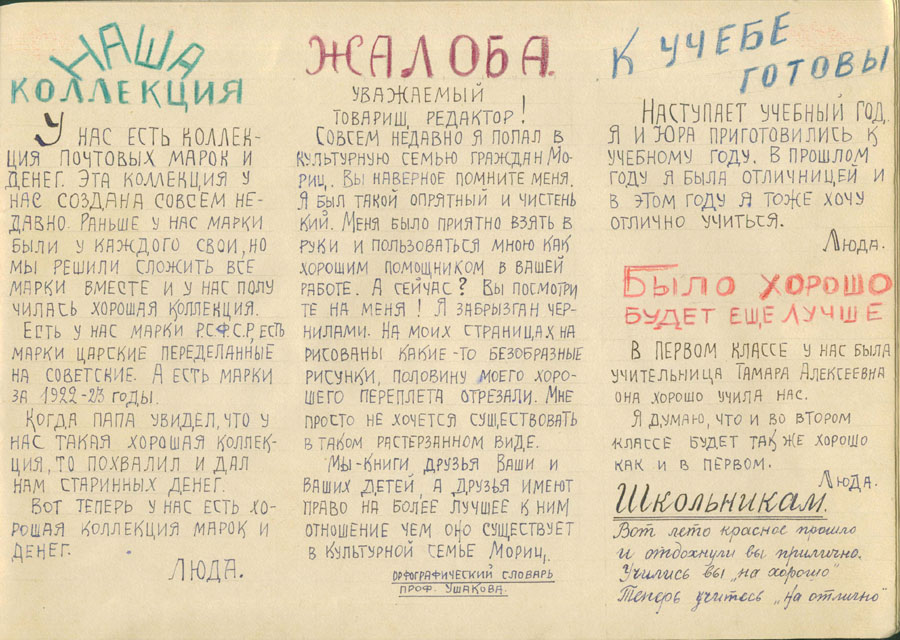 НАША
КОЛЛЕКЦИЯ
У НАС ЕСТЬ КОЛЛЕК-
ЦИЯ ПОЧТОВЫХ МАРОК И
ДЕНЕГ. ЭТА КОЛЛЕКЦИЯ У
НАС СОЗДАНА СОВСЕМ НЕ-
ДАВНО. РАНЬШЕ У НАС МАРКИ
БЫЛИ У КАЖДОГО СВОИ, НО
МЫ РЕШИЛИ СЛОЖИТЬ ВСЕ
МАРКИ ВМЕСТЕ И У НАС ПОЛУ
ЧИЛАСЬ ХОРОШАЯ КОЛЛЕКЦИЯ.
ЕСТЬ У НАС МАРКИ Р.С.Ф.С.Р, ЕСТЬ
МАРКИ ЦАРСКИЕ ПЕРЕДЕЛАННЫЕ
НА СОВЕТСКИЕ. А ЕСТЬ МАРКИ
ЗА 1922-23 ГОДЫ.
КОГДА ПАПА УВИДЕЛ, ЧТО У
НАС ТАКАЯ ХОРОШАЯ КОЛЛЕК-
ЦИЯ, ТО ПОХВАЛИЛ И ДАЛ
НАМ СТАРИННЫХ ДЕНЕГ.
ВОТ ТЕПЕРЬ У НАС ЕСТЬ ХО-
РОШАЯ КОЛЛЕКЦИЯ МАРОК И
ДЕНЕГ.
ЛЮДА.
ЖАЛОБА.
УВАЖАЕМЫЙ
ТОВАРИЩ РЕДАКТОР!
СОВСЕМ НЕДАВНО Я ПОПАЛ В
КУЛЬТУРНУЮ СЕМЬЮ ГРАЖДАН МО-
РИЦ. ВЫ НАВЕРНОЕ ПОМНИТЕ МЕНЯ.
Я БЫЛ ТАКОЙ ОПРЯТНЫЙ И ЧИСТЕНЬ
КИЙ. МЕНЯ БЫЛО ПРИЯТНО ВЗЯТЬ В
РУКИ И ПОЛЬЗОВАТЬСЯ МНОЮ КАК
ХОРОШИМ ПОМОЩНИКОМ В ВАШЕЙ
РАБОТЕ. А СЕЙЧАС? ВЫ ПОСМОТРИ
ТЕ НА МЕНЯ! Я ЗАБРЫЗГАН ЧЕР-
НИЛАМИ. НА МОИХ СТРАНИЦАХ НА
РИСОВАНЫ КАКИЕ-ТО БЕЗОБРАЗНЫЕ
РИСУНКИ, ПОЛОВИНУ МОЕГО ХОРО-
ШЕГО ПЕРЕПЛЕТА ОТРЕЗАЛИ. МНЕ
ПРОСТО НЕ ХОЧЕТСЯ СУЩЕСТВОВАТЬ
В ТАКОМ РАСТЕРЗАННОМ ВИДЕ.
МЫ-КНИГИ, ДРУЗЬЯ ВАШИ И
ВАШИХ ДЕТЕЙ, А ДРУЗЬЯ ИМЕЮТ
ПРАВО НА БОЛЕЕ ЛУЧШЕЕ К НИМ
ОТНОШЕНИЕ ЧЕМ ОНО СУЩЕСТВУЕТ
В КУЛЬТУРНОЙ СЕМЬЕ МОРИЦ.
ОРФОГРАФИЧЕСКИЙ СЛОВАРЬ
ПРОФ. УШАКОВА.
К УЧЕБЕ
ГОТОВЫ
НАСТУПАЕТ УЧЕБНЫЙ ГОД.
Я И ЮРА ПРИГОТОВИЛИСЬ К
УЧЕБНОМУ ГОДУ. В ПРОШЛОМ
ГОДУ Я БЫЛА ОТЛИЧНИЦЕЙ И
В ЭТОМ ГОДУ Я ТОЖЕ ХОЧУ
ОТЛИЧНО УЧИТЬСЯ.
ЛЮДА.
БЫЛО ХОРОШО
БУДЕТ ЕЩЕ ЛУЧШЕ
В ПЕРВОМ КЛАССЕ У НАС БЫЛА
УЧИТЕЛЬНИЦА ТАМАРА АЛЕКСЕЕВНА
ОНА ХОРОШО УЧИЛА НАС.
Я ДУМАЮ, ЧТО И ВО ВТОРОМ
КЛАССЕ БУДЕТ ТАК ЖЕ ХОРОШО
КАК И В ПЕРВОМ.
ЛЮДА.
ШКОЛЬНИКАМ.
Вот лето красное прошло
и отдохнули вы прилично.
Учились вы „на хорошо"
Теперь учитесь „на отлично"